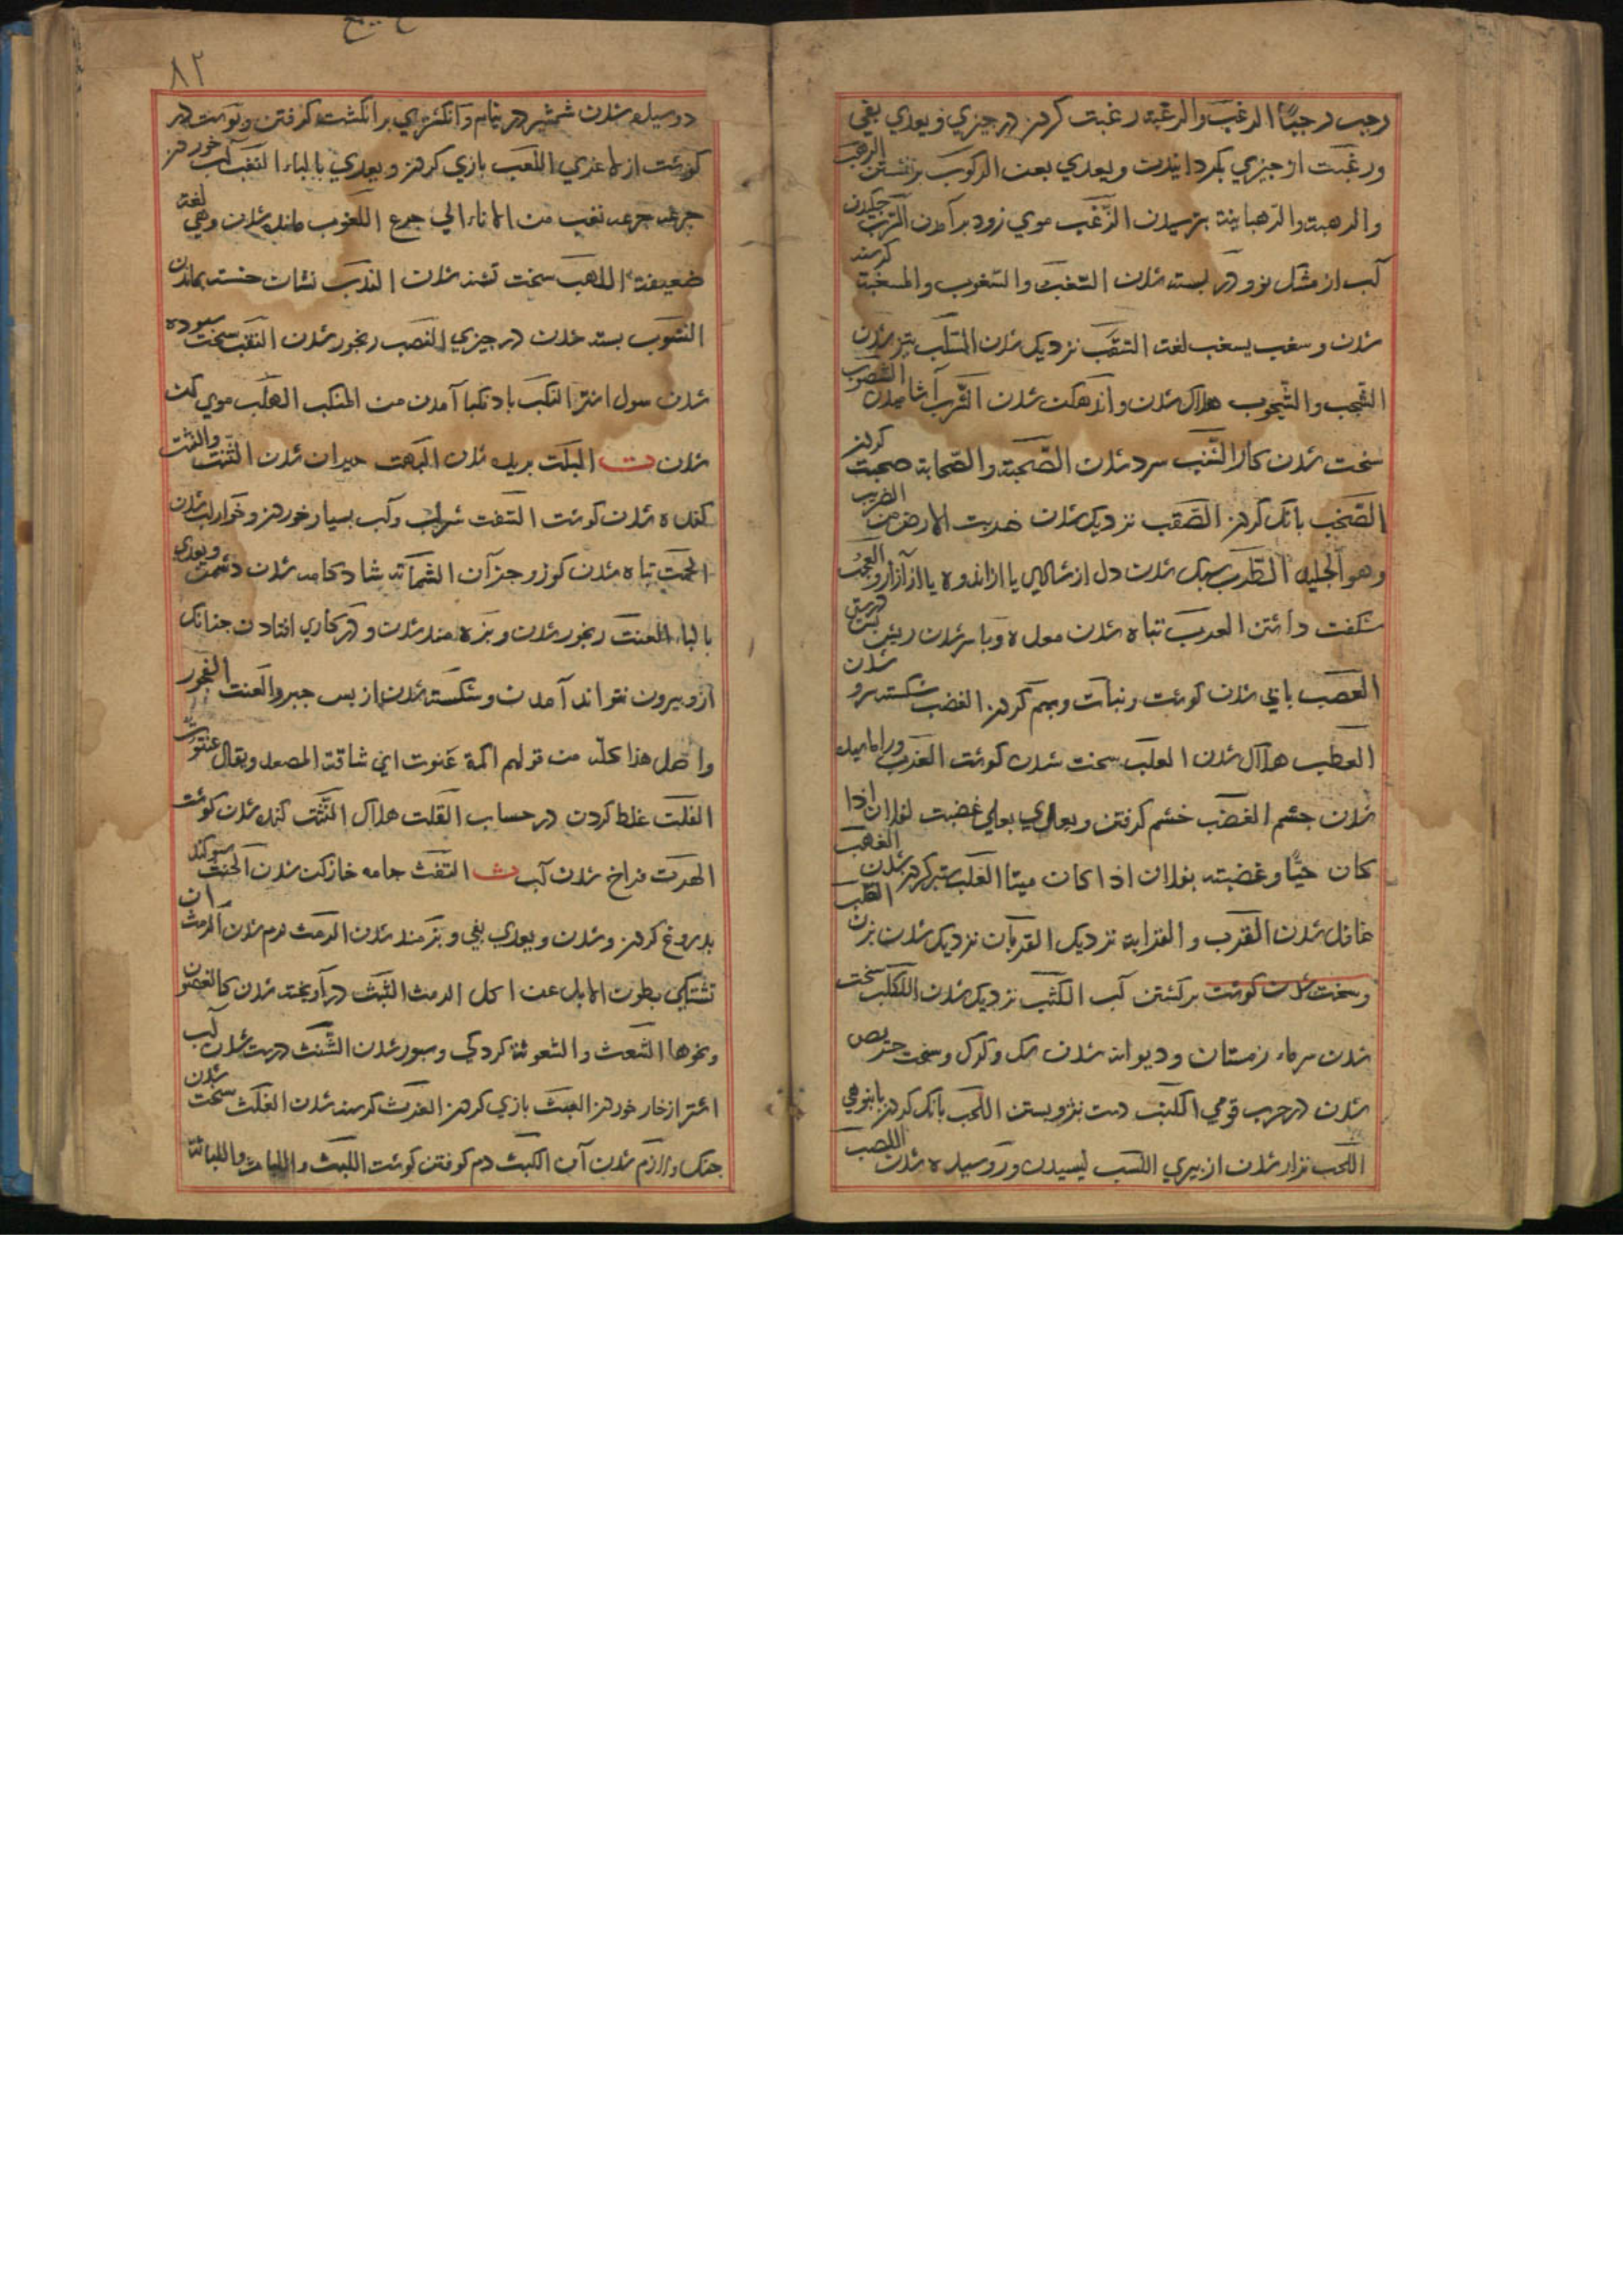 رجب رجبًا الرغب والرغبة رغبت کردن در چیزی ویعدی بفی
ورغبت از چیزی بکردانیدن ویعدی بعن الرکوب برنشستن الرهب
والرهبة والرهبانیة بترسیدن الزغب موی زود برآمدن السرب چکیدن
آب از مشک نو ودر بسته شدن السغب والسغوب والمسغبة کرسنه
شدن وسغب یسغب لغت السقب نزدیک شدن
الشجب والشجوب هلاک شدن واندهکن شدن الشرب آشامیدن الشصوب
سخت شدن کار الشنب سرد شدن الصحبة والصحابة صحبت کردن
الصخب بانک کردن الصقب نزدیک شدن ضربت الارض من الضریب
وهو الجلید الطرب سبک شدن دل از شادی یا از اندوه یا از آزار و العجب
شکفت داشتن العرب تباه شدن معده وباسر شدن ریش
العصب باقی شدن کوشت ونبات وبهم کردن الغضب شکسته سرو شدن
العطب هلاک شدن العلب سخت شدن کوشت
شدن چشم الغضب خشم کرفتن ویعدی بعلی غضبت لفلان اذا
کان حیًا وغضبت بفلان اذا کان میتا الغلب ستبر کردن شدن الغهب
غافل شدن القرب والقرابة نزدیک القربان نزدیک شدن بزن
وسخت شدن کوشت برکشتن آب الکثب نزدیک شدن الکلب سخت
شدن سرماء زمستان ودیوانه شدن سک وکرک وسخت حریص
شدن در حرب قومی الکنب دست بنزو بستن اللجب بانک کردن بانبوهی
اللحب نزار شدن از پیری اللسب لیسیدن ودوسیده شدن اللصب
دوسیده شدن شمشیر در نیام وانکشتری بر انکشت کرفتن وپوست در
کوشت از لاغری اللعب بازی کردن ویعدی بالباء النغب آب خوردن
جرعه جرعه نغب من الاناء ای جرع اللغوب مانده شدن وهی لغة
ضعیفة اللهب سخت تشنه شدن الندب نشان خسته بماندن
النشوب بسته شدن در چیزی النصب رنجور شدن النقب سخت سوده
شدن سول اشتر النکب باد نکبا آمدن من المنکب الهلب موی کن
شدن ت البلت بریده شدن البهت حیران شدن الثنت والنثت
کنده شدن کوشت السفت شراب وآب بسیار خوردن وخوار شدن
الحمت تباه شدن کوز وجز آن الشماتة شادکامه شدن دشمن ویعدی
بالباء العنت رنجور شدن وبزه مند شدن ودر کاری افتادن چنانک
ازو بیرون نتواند آمدن وشکسته شدن از پس جبر والعنت الفجور
واصل هذا کله من قولهم اکمة عنوت ای شاقة المصعد ویقال عنتوت
الغلت غلط کردن در حساب القلت هلاک النثت کنده شدن کوشت
الهرت فراخ شدن آب ث التفث جامه خازکن شدن الحنث سوکند
بدروغ کردن وشدن ویعدی بفی وبزمند شدن الدمث نرم شدن الرمث ان
تشتکی بطون الابل عن اکل الرمث الشبث درآویخته شدن کالغصن
ونحوها الشعث والشعوثة کردکی وسور شدن الشنث درشت شدن لب
اشتر از خار خوردن العبث بازی کردن الغرث کرسنه شدن الغلث سخت شدن
جنک ولازم شدن آن الکبث دم کوفتن کوشت اللبث واللباث واللباثة